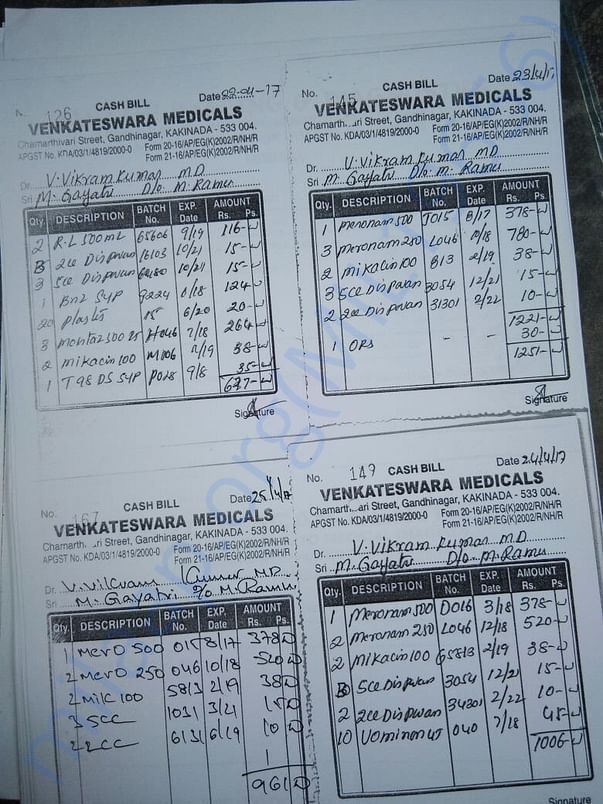 No. 126 CASH BILL Date 22-04-17
VENKATESWARA MEDICALS
Chamarthivari Street, Gandhinagar, KAKINADA - 533 004.
APGST No. KDA/03/1/4819/2000-0 Form 20-16/AP/EG(K)2002/R/NH/R
Form 21-16/AP/EG(K)2002/R/NH/R
Dr. V. Vikram Kumar MD
Sri M. Gayatri D/o M. Ramu
Qty. DESCRIPTION BATCH No. EXP. Date AMOUNT Rs. Ps.
2 R.L 500ML 65606 9/19 116-
3 2cc Dispwan 16103 10/21 15-
3 5cc Dispwan 10/21 15-
1 Bnz Syp 9224 8/18 124-
20 Plastis 15 6/20 20-
3 7/18 264-
2 Mikacin 100 M006 2/19 38-
1 T98 DS Syp P028 9/18 35-
627-
Signature
No. 145 CASH BILL Date 23/4/17
VENKATESWARA MEDICALS
Chamarth ari Street, Gandhinagar, KAKINADA - 533 004.
APGST No. KDA/03/1/4819/2000-0 Form 20-16/AP/EG(K)2002/R/NH/R
Form 21-16/AP/EG(K)2002/R/NH/R
Dr. V. Vikram Kumar MD
Sri M. Gayatri D/o M. Ramu
Qty. DESCRIPTION BATCH No. EXP. Date AMOUNT Rs. Ps.
1 Meronam 500 JO15 8/17 378-
3 Meronam 250 L046 780-
2 Mikacin 100 813 2/19 38-
3 5cc Dispwan 3054 12/21 15-
2 2cc Dispwan 31301 2/22 10-
1221-
1 ORS - - 30-
1251-
Signature
No. 167 CASH BILL Date 25/4/17
VENKATESWARA MEDICALS
Chamarth ari Street, Gandhinagar, KAKINADA - 533 004.
APGST No. KDA/03/1/4819/2000-0 Form 20-16/AP/EG(K)2002/R/NH/R
Form 21-16/AP/EG(K)2002/R/NH/R
Dr. V. Vikram Kumar MD
Sri M. Gayatri D/o M. Ramu
Qty. DESCRIPTION BATCH No. EXP. Date AMOUNT Rs. Ps.
1 Mero 500 015 8/17 378
2 Mero 250 046 10/18 520
2 Mik 100 5813 2/19 38
3 5CC 1031 3/21 15
2 2CC 6131 6/19 10
961
No. 149 CASH BILL Date 24/4/17
VENKATESWARA MEDICALS
Chamarth ari Street, Gandhinagar, KAKINADA - 533 004.
APGST No. KDA/03/1/4819/2000-0 Form 20-16/AP/EG(K)2002/R/NH/R
Form 21-16/AP/EG(K)2002/R/NH/R
Dr. V. Vikram Kumar MD
Sri M. Gayatri D/o M. Ramu
Qty. DESCRIPTION BATCH No. EXP. Date AMOUNT Rs. Ps.
1 Meronam 500 DO16 3/18 378-
2 Meronam 250 L046 12/18 520-
2 Mikacin 100 65813 2/19 38-
3 5cc Dispwan 3054 12/21 15-
2 2cc Dispwan 34301 2/22 10-
10 040 7/18 45-
1006-
Signature